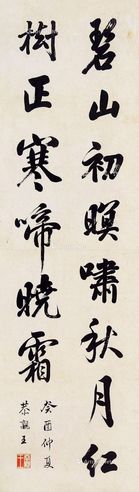 碧山初暝嘯秋月红
樹正寒啼曉霜
癸酉仲夏
恭親王